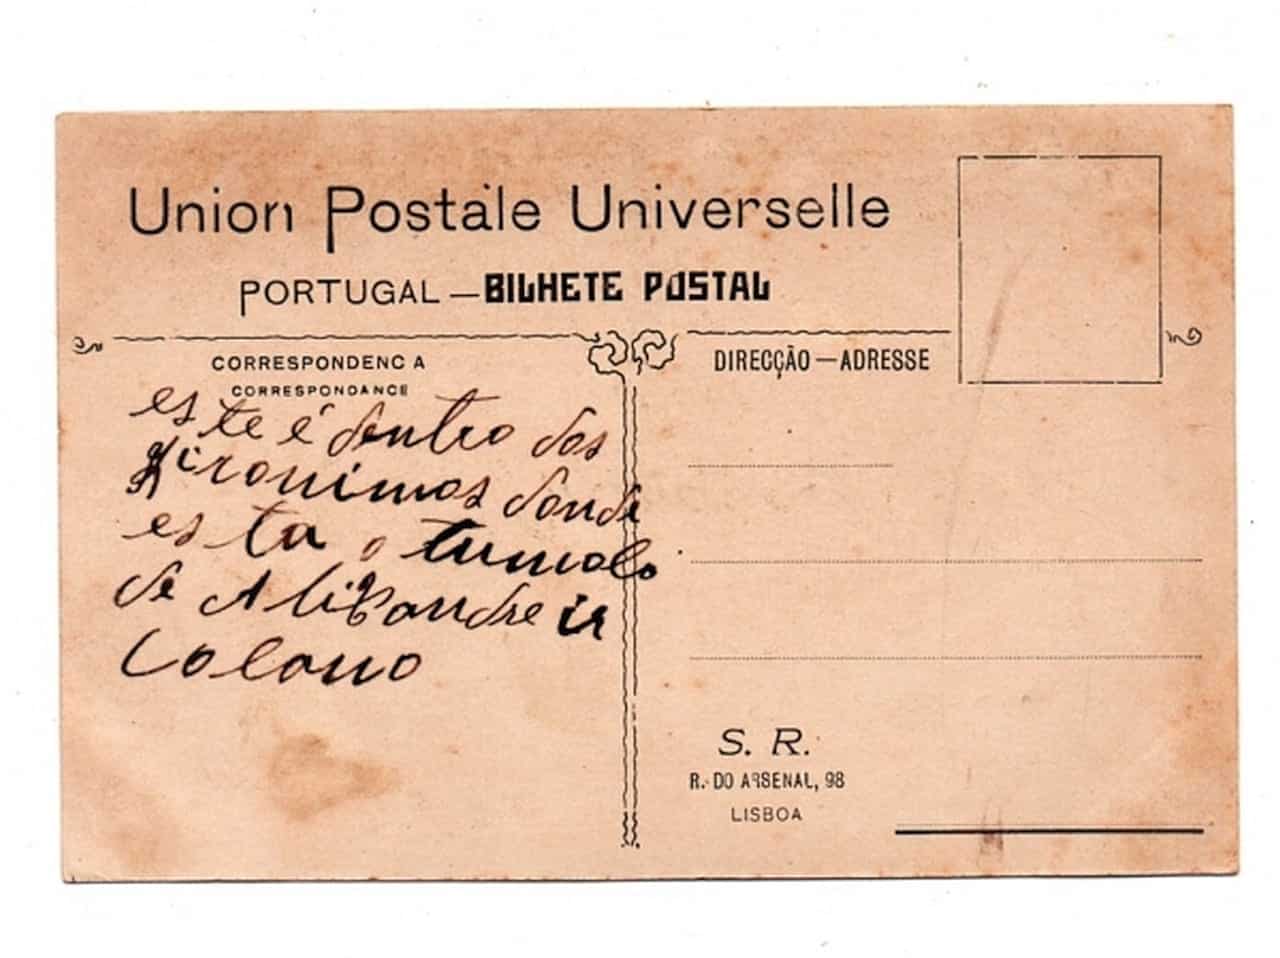 Union Postale Universelle
PORTUGAL — BILHETE POSTAL
CORRESPONDENCIA
CORRESPONDANCE
DIRECÇÃO — ADRESSE
este é dentro dos
Jironimos donde
esta o tumolo
de Alixandre ir
Colano
S. R.
R. DO ARSENAL, 98
LISBOA